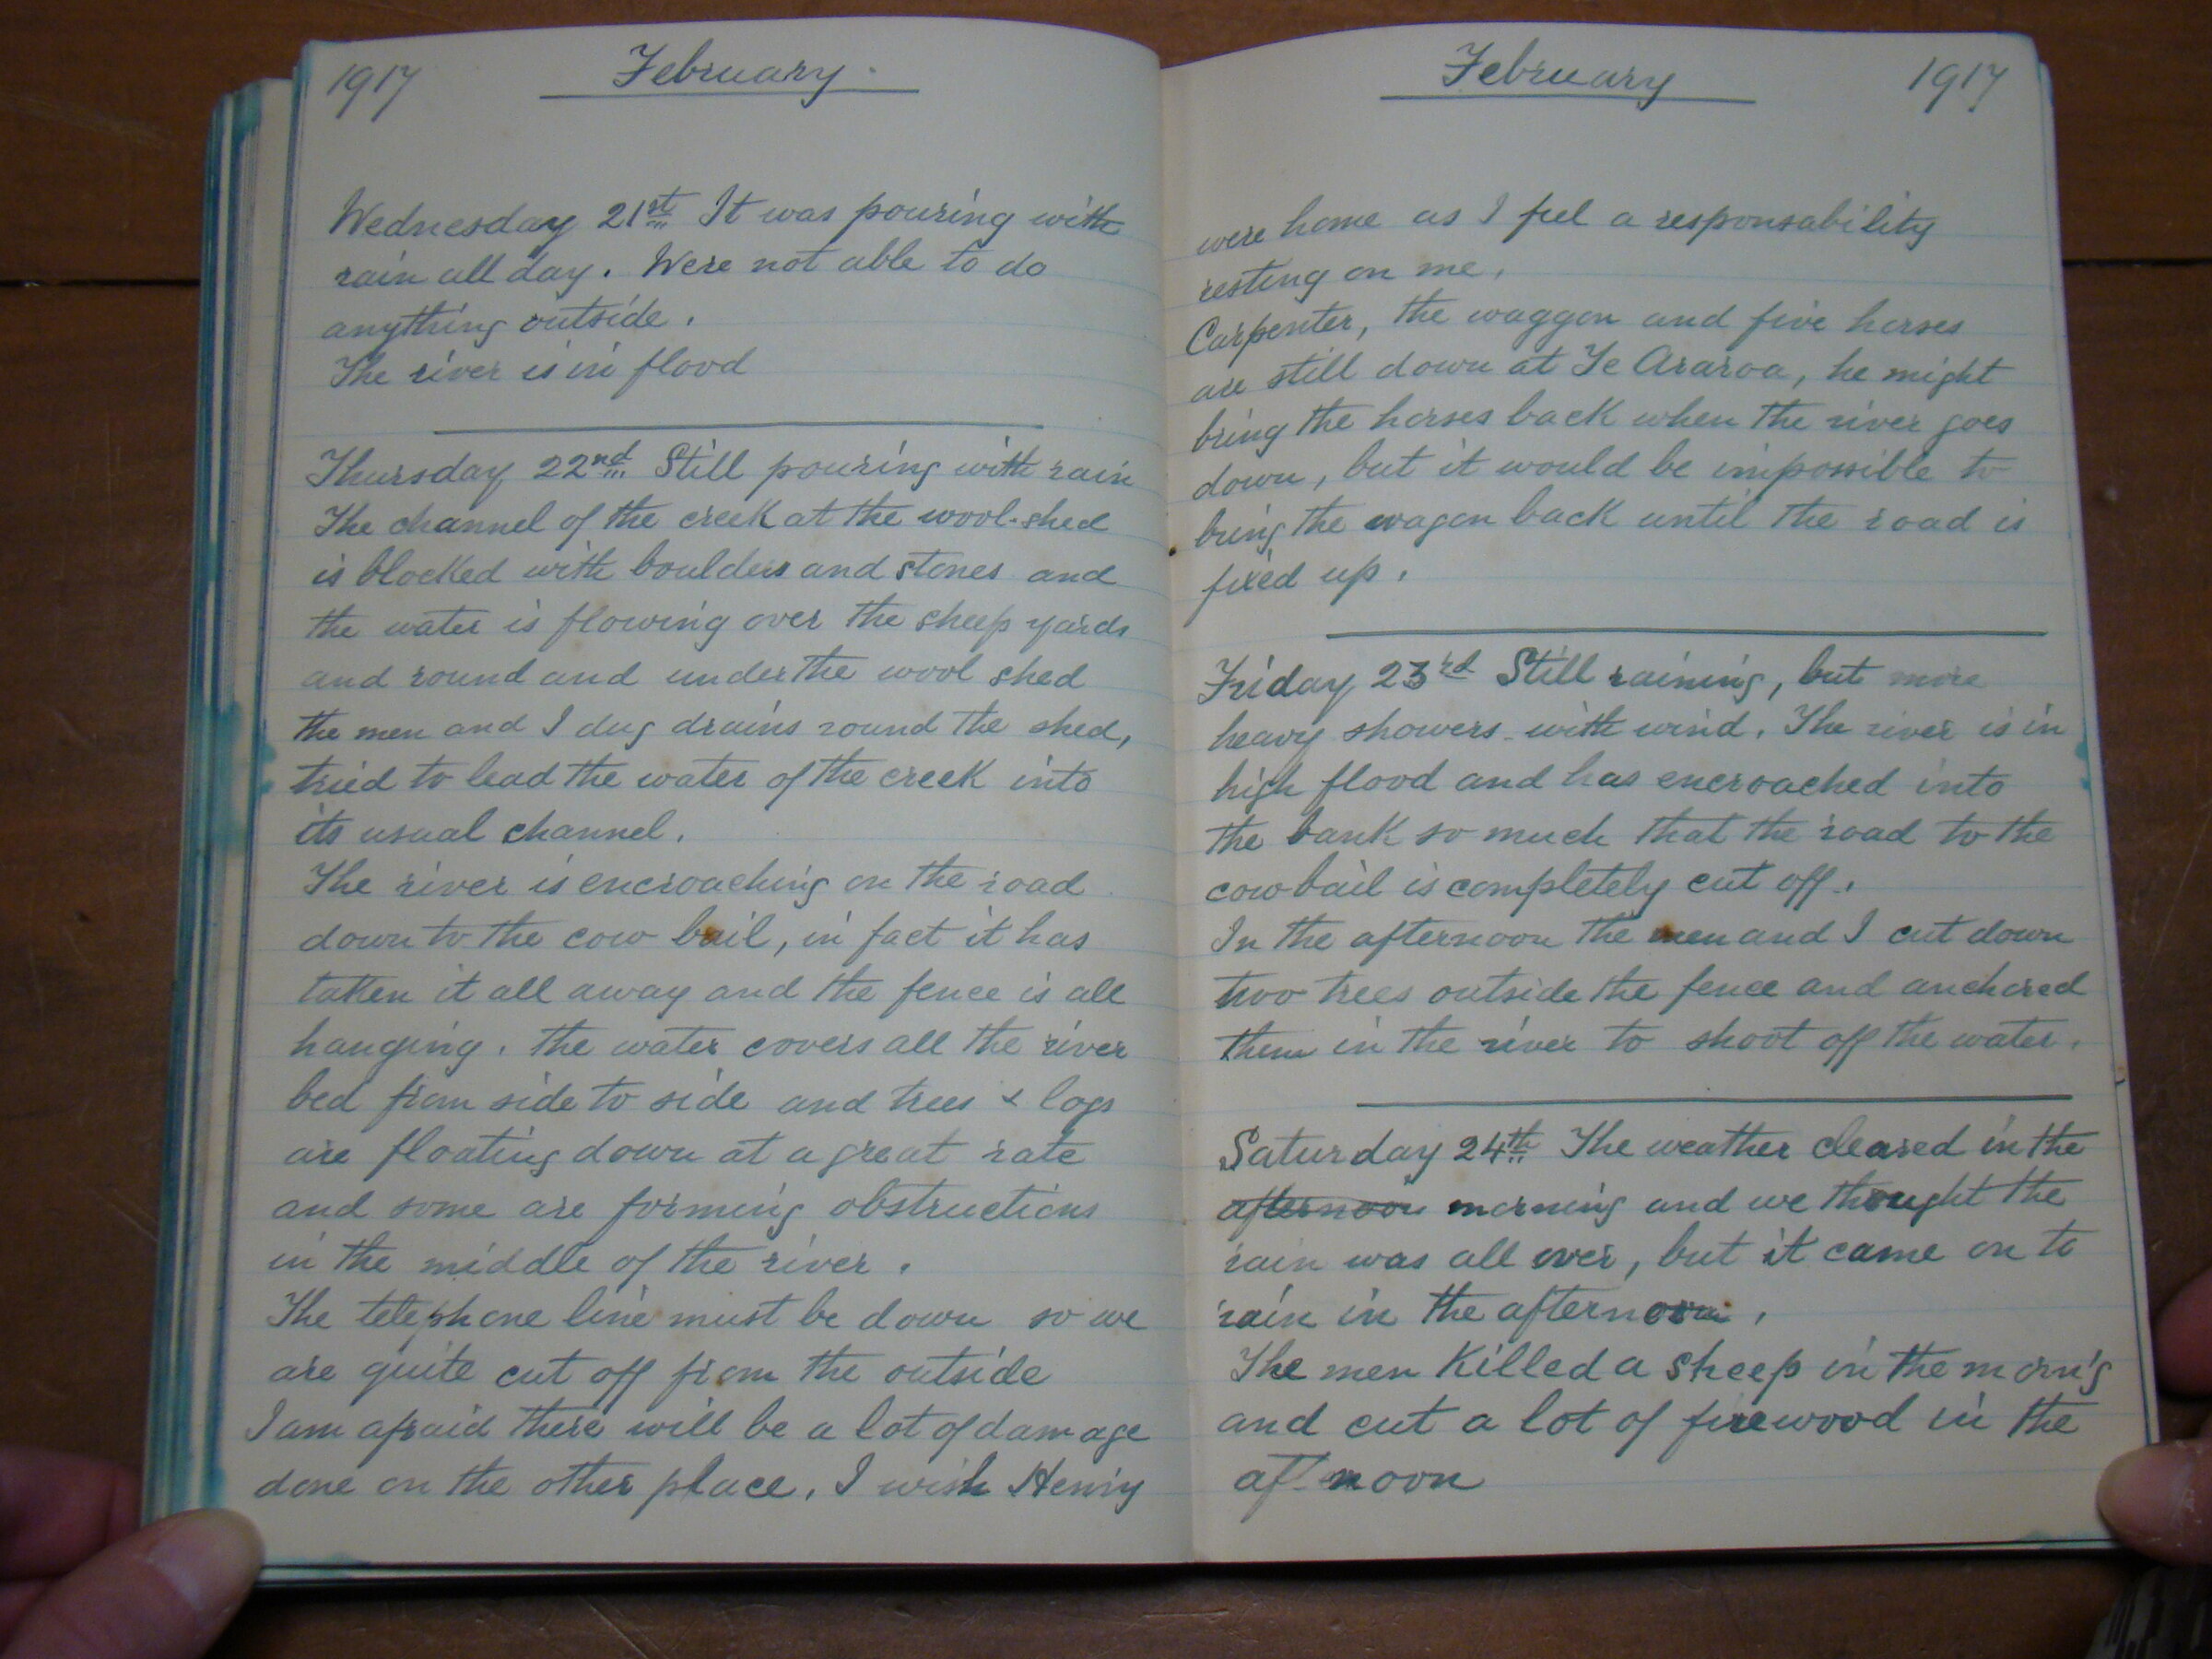 1917 February.
Wednesday 21st It was pouring with
rain all day. Were not able to do
anything outside.
The river is in flood
Thursday 22nd Still pouring with rain
The channel of the creek at the wool-shed
is blocked with boulders and stones and
the water is flowing over the sheep yards
and round and under the wool shed
the men and I dug drains round the shed,
tried to lead the water of the creek into
its usual channel.
The river is encroaching on the road
down to the cow bail, in fact it has
taken it all away and the fence is all
hanging. the water covers all the river
bed from side to side and trees & logs
are floating down at a great rate
and some are forming obstructions
in the middle of the river.
The telephone line must be down so we
are quite cut off from the outside
I am afraid there will be a lot of damage
done on the other place. I wish Henry
February 1917
were home as I feel a responsability
resting on me.
Carpenter, the waggon and five horses
are still down at Te Araroa, he might
bring the horses back when the river goes
down, but it would be impossible to
bring the wagon back until the road is
fixed up.
Friday 23rd Still raining, but more
heavy showers with wind. The river is in
high flood and has encroached into
the bank so much that the road to the
cowbail is completely cut off.
In the afternoon the men and I cut down
two trees outside the fence and anchored
them in the river to shoot off the water.
Saturday 24th The weather cleared in the
afternoon morning and we thought the
rain was all over, but it came on to
rain in the afternoon.
The men killed a sheep in the morn'g
and cut a lot of firewood in the
af-noon